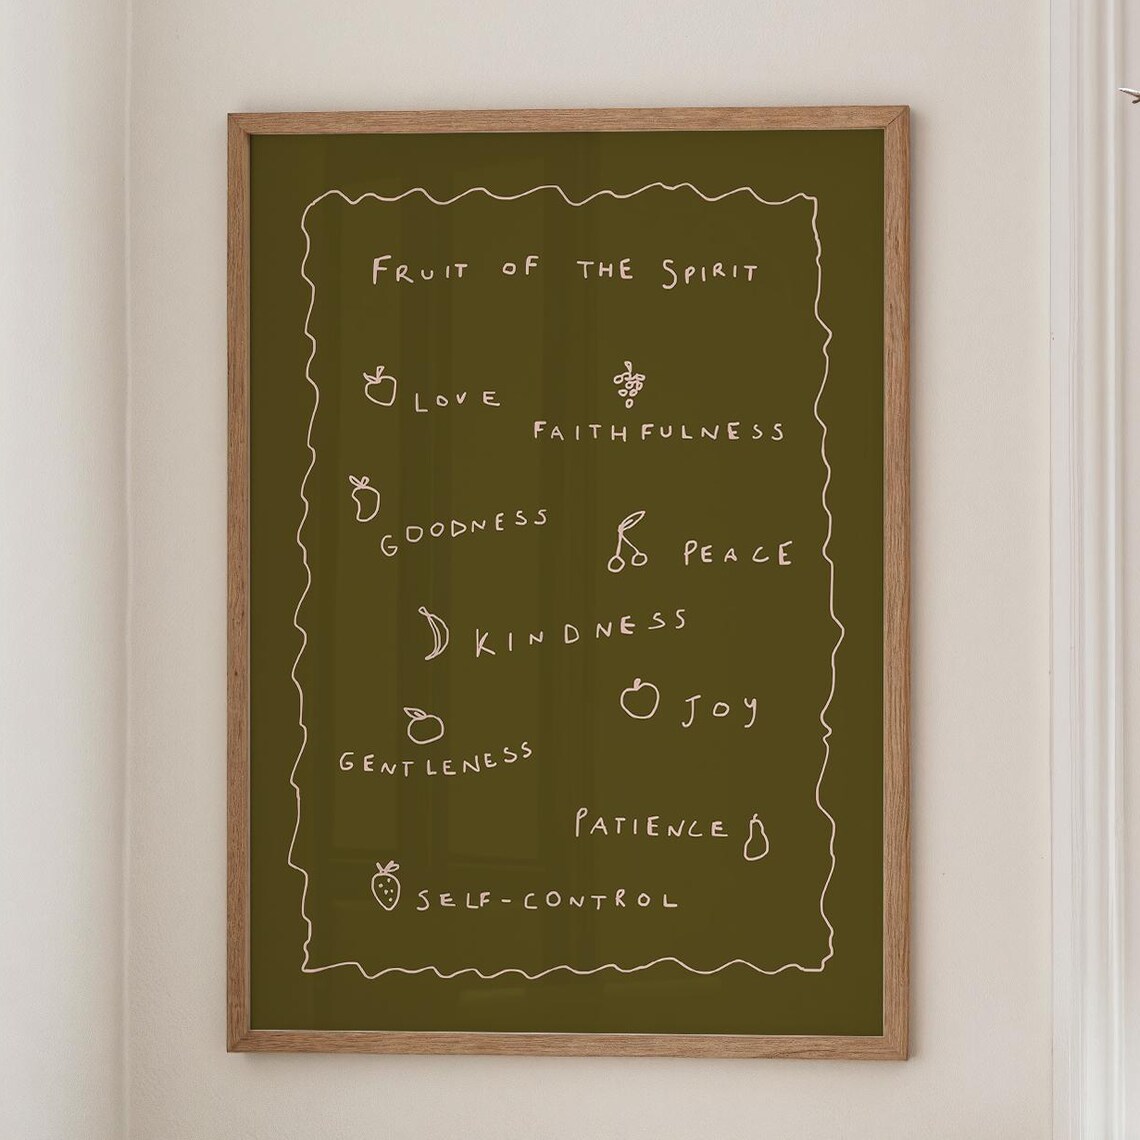 FRUIT OF THE SPIRIT
LOVE
FAITHFULNESS
GOODNESS
PEACE
KINDNESS
JOY
GENTLENESS
PATIENCE
SELF-CONTROL